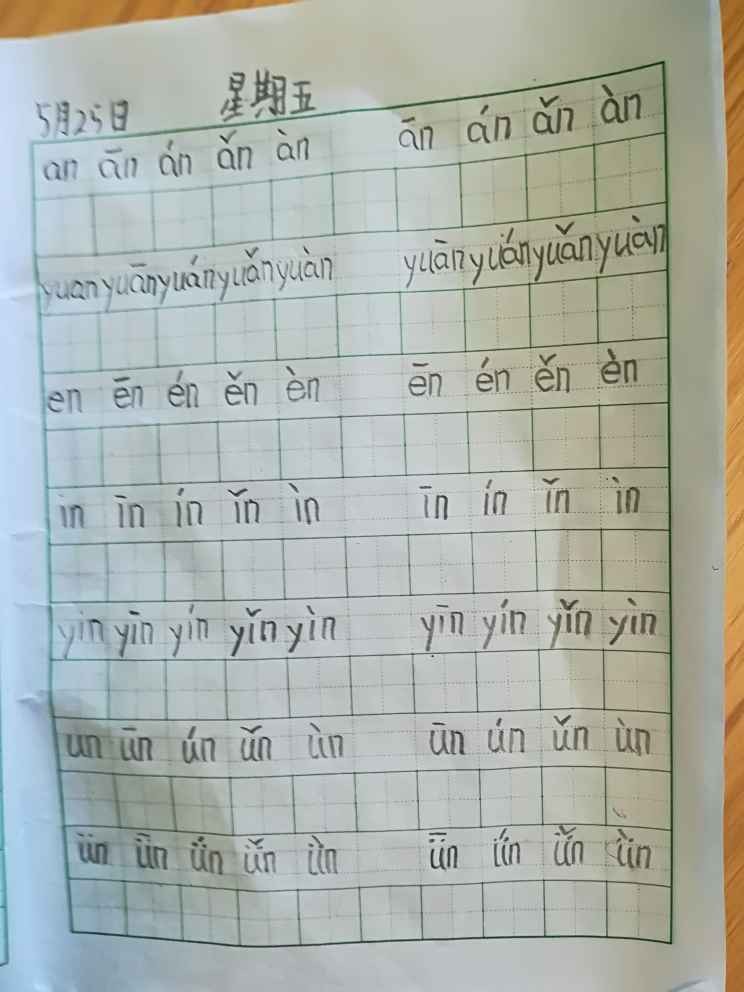 5月25日 星期五
an ān án ǎn àn ān án ǎn àn
yuan yuān yuán yuǎn yuàn yuān yuán yuǎn yuàn
en ēn én ěn èn ēn én ěn èn
in īn ín ǐn ìn īn ín ǐn ìn
yin yīn yín yǐn yìn yīn yín yǐn yìn
un ūn ún ǔn ùn ūn ún ǔn ùn
ün ǖn ǘn ǚn ǜn ǖn ǘn ǚn ǜn